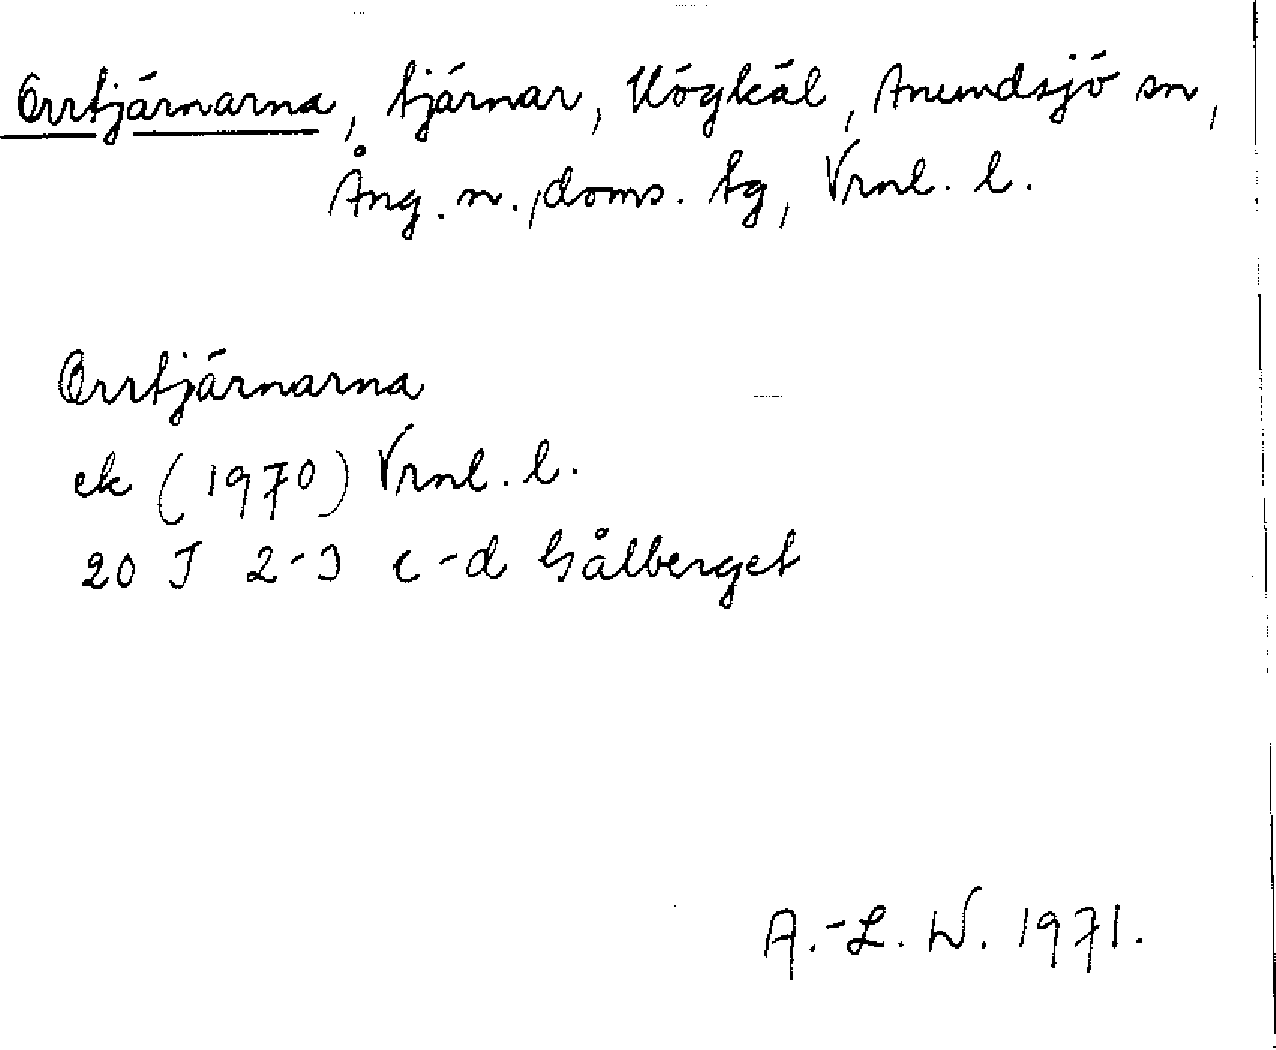 Orrtjärnarna, tjärnar, Högkäl, Anundsjö sn,
Ång. n., doms. tg, Vrnl. l.
Orrtjärnarna
ek (1970) Vrnl. l.
20 J 2-3 c-d Gålberget
A.-L. W. 1971.